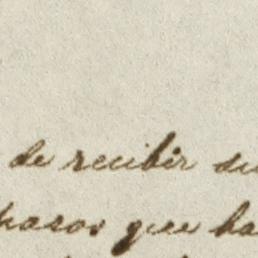 de recibir su
pasos que ha